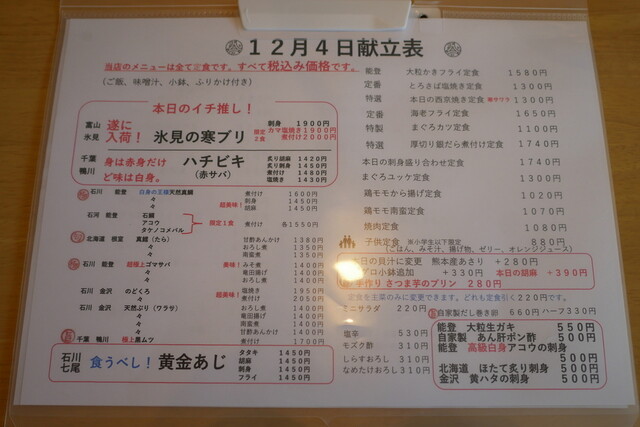 12月4日献立表
当店のメニューは全て定食です。すべて税込み価格です。
（ご飯、味噌汁、小鉢、ふりかけ付き）
本日のイチ推し！
富山 氷見 遂に入荷！ 氷見の寒ブリ 限定2食
刺身 1900円
カマ塩焼き1900円
煮付け2000円
千葉 鴨川 身は赤身だけど味は白身。 ハチビキ（赤サバ）
炙り胡麻 1420円
炙り刺身 1450円
煮付け 1480円
塩焼き 1430円
石川 能登 白身の王様天然真鯛 超美味！ 煮付け 1600円
々 刺身 1450円
々 胡麻 1450円
石河 能登 石鯛
アコウ 限定1食 煮付け 各1550円
タケノコメバル
北海道 根室 真鱈（たら） 甘酢あんかけ 1380円
々 おろし煮 1350円
々 南蛮煮 1350円
石川 能登 超極上ゴマサバ 美味！ みそ煮 1400円
々 竜田揚げ 1400円
々 おろし煮 1400円
石川 金沢 のどくろ 超美味！ 塩焼き 1950円
々 煮付け
石川 金沢 天然ぶり（ワラサ） おろし煮 1400円
々 竜田揚げ 1400円
々 南蛮煮 1400円
々 甘酢あんかけ 1400円
千葉 鴨川 極上黒ムツ 煮付け 1700円
石川 七尾 食うべし！ 黄金あじ
タタキ 1450円
胡麻 1450円
刺身 1450円
フライ 1450円
能登 大粒かきフライ定食 1580円
定番 とろさば塩焼き定食 1300円
特選 本日の西京焼き定食 1300円
定番 海老フライ定食 1650円
特製 まぐろカツ定食 1100円
特選 厚切り銀だら煮付け定食 1740円
本日の刺身盛り合わせ定食 1740円
まぐろユッケ定食 1300円
鶏モモから揚げ定食 1020円
鶏モモ南蛮定食 1070円
焼肉定食 1080円
子供定食 ※小学生以下限定 880円
（ごはん、みそ汁、揚げ物、ゼリー、オレンジジュース）
本日の貝汁に変更 熊本産あさり ＋280円
小鉢追加 ＋330円 本日の胡麻 ＋390円
手作り さつま芋のプリン 280円
定食を主菜のみに変更できます。どれも定食引く220円です。
ミニサラダ 220円
自家製だし巻き卵 660円 ハーフ330円
塩辛 530円
モズク酢 310円
しらすおろし 310円
なめたけおろし310円
能登 大粒生ガキ 550円
自家製 あん肝ポン酢 500円
能登 高級白身アコウの刺身
500円
北海道 ほたて炙り刺身 500円
金沢 黄ハタの刺身 500円